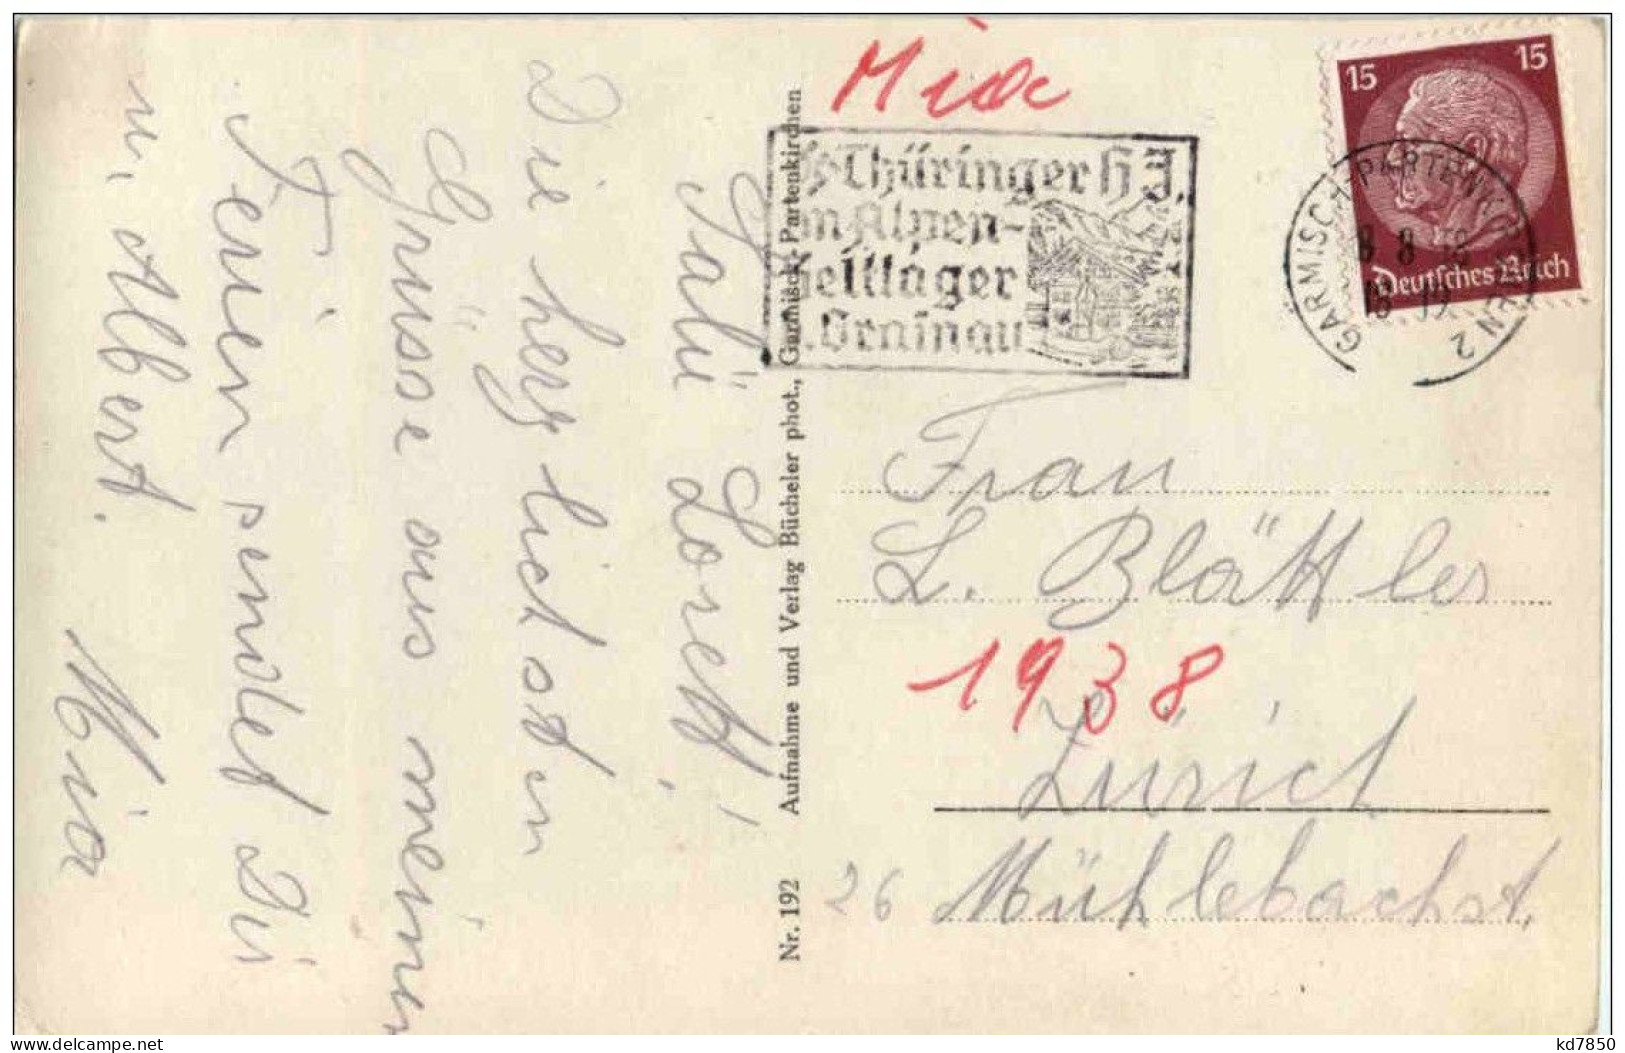 Salü Lorett!
Die herzlichsten
Grüsse aus meinen
Ferien sendet Dir
u. Albert.
Mia
Nr. 192 Aufnahme und Verlag Bücheler phot., Garmisch-Partenkirchen
Mia
Thüringer HJ.
im Alpen-
zeltlager
Grainau
15 15
Deutsches Reich
GARMISCH-PARTENKIRCHEN 2
8 8 38
Frau
L. Blättler
1938
Zürich
26 Mühlebachst.
delcampe.net
kd7850